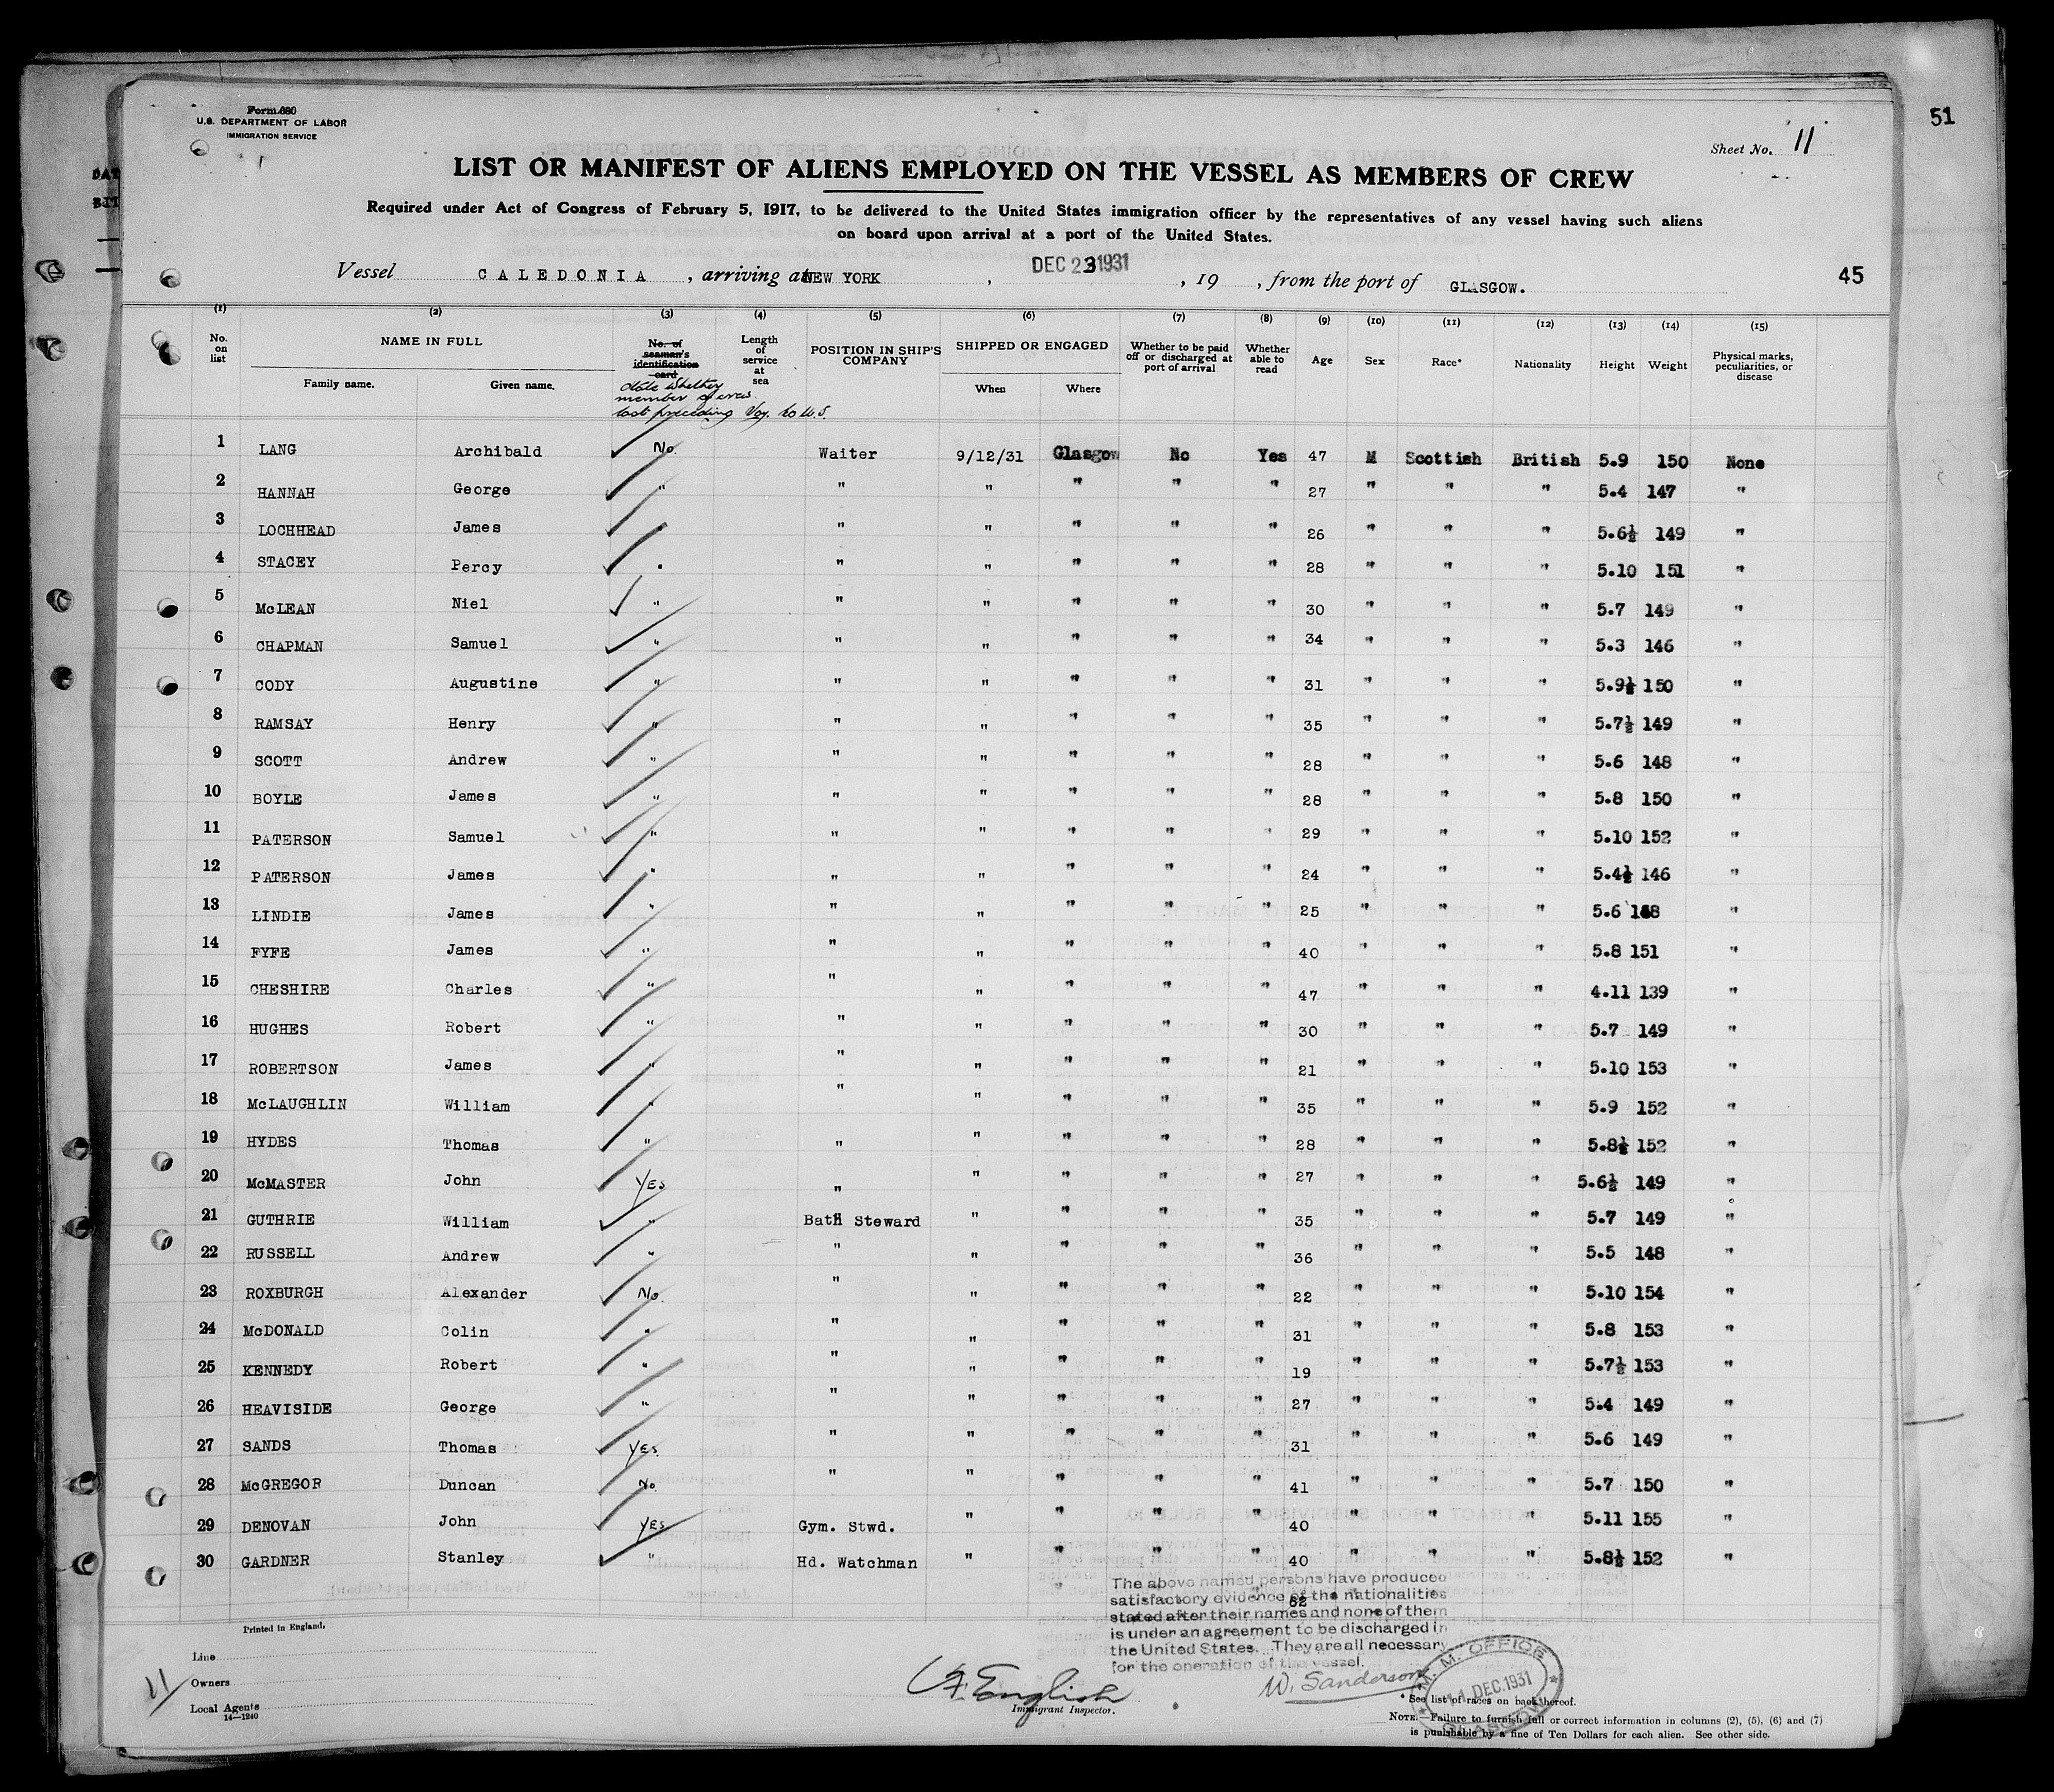 51
Form 680
U.S. DEPARTMENT OF LABOR
IMMIGRATION SERVICE
Sheet No. 11
LIST OR MANIFEST OF ALIENS EMPLOYED ON THE VESSEL AS MEMBERS OF CREW
Required under Act of Congress of February 5, 1917, to be delivered to the United States immigration officer by the representatives of any vessel having such aliens
on board upon arrival at a port of the United States.
Vessel CALEDONIA, arriving at NEW YORK, DEC 23 1931, 19 , from the port of GLASGOW.
45
(1) (2) (3) (4) (5) (6) (7) (8) (9) (10) (11) (12) (13) (14) (15)
No. on list NAME IN FULL Family name. Given name. No. of seaman's identification card Length of service at sea POSITION IN SHIP'S COMPANY SHIPPED OR ENGAGED When Where Whether to be paid off or discharged at port of arrival Whether able to read Age Sex Race* Nationality Height Weight Physical marks, peculiarities, or disease
state whether
member of crew
last preceding Voy. to U.S.
1 LANG Archibald No. Waiter 9/12/31 Glasgow No Yes 47 M Scottish British 5.9 150 None
2 HANNAH George " " " " " " 27 " " " 5.4 147 "
3 LOCHHEAD James " " " " " " 26 " " " 5.6½ 149 "
4 STACEY Percy " " " " " " 28 " " " 5.10 151 "
5 McLEAN Niel " " " " " " 30 " " " 5.7 149 "
6 CHAPMAN Samuel " " " " " " 34 " " " 5.3 146 "
7 CODY Augustine " " " " " " 31 " " " 5.9½ 150 "
8 RAMSAY Henry " " " " " " 35 " " " 5.7½ 149 "
9 SCOTT Andrew " " " " " " 28 " " " 5.6 148 "
10 BOYLE James " " " " " " 28 " " " 5.8 150 "
11 PATERSON Samuel " " " " " " 29 " " " 5.10 152 "
12 PATERSON James " " " " " " 24 " " " 5.4½ 146 "
13 LINDIE James " " " " " " 25 " " " 5.6 148 "
14 FYFE James " " " " " " 40 " " " 5.8 151 "
15 CHESHIRE Charles " " " " " " 47 " " " 4.11 139 "
16 HUGHES Robert " " " " " " 30 " " " 5.7 149 "
17 ROBERTSON James " " " " " " 21 " " " 5.10 153 "
18 McLAUGHLIN William " " " " " " 35 " " " 5.9 152 "
19 HYDES Thomas " " " " " " 28 " " " 5.8½ 152 "
20 McMASTER John Yes " " " " " 27 " " " 5.6½ 149 "
21 GUTHRIE William " Bath Steward " " " " 35 " " " 5.7 149 "
22 RUSSELL Andrew " " " " " " 36 " " " 5.5 148 "
23 ROXBURGH Alexander No. " " " " " 22 " " " 5.10 154 "
24 McDONALD Colin " " " " " " 31 " " " 5.8 153 "
25 KENNEDY Robert " " " " " " 19 " " " 5.7½ 153 "
26 HEAVISIDE George " " " " " " 27 " " " 5.4 149 "
27 SANDS Thomas Yes. " " " " " 31 " " " 5.6 149 "
28 McGREGOR Duncan No. " " " " " 41 " " " 5.7 150 "
29 DENOVAN John Yes Gym. Stwd. " " " " 40 " " " 5.11 155 "
30 GARDNER Stanley " Hd. Watchman " " " " 40 " " " 5.8½ 152 "
The above named persons have produced
satisfactory evidence of the nationalities
stated after their names and none of them
is under an agreement to be discharged in
the United States. They are all necessary
for the operation of the vessel.
62
Printed in England.
Line
Owners
Local Agents
14—1240
11
English
Immigrant Inspector.
W. Sanderson
M. M. OFFICE
DEC. 1931
GLASGOW
* See list of races on back hereof.
NOTE.—Failure to furnish full or correct information in columns (2), (5), (6) and (7)
is punishable by a fine of Ten Dollars for each alien. See other side.